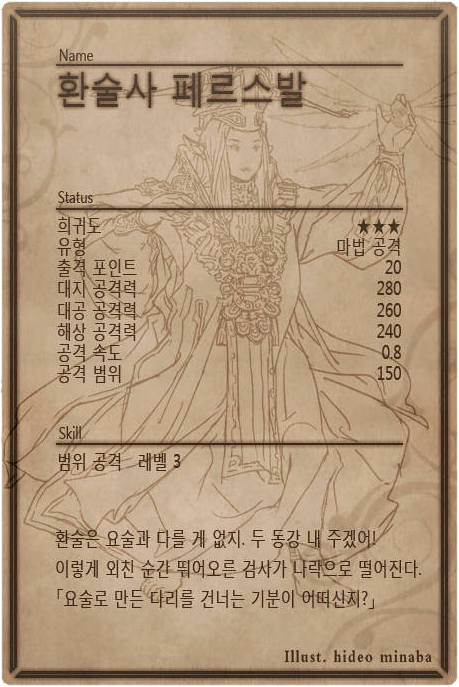 Name
환술사 페르스발
Status
희귀도 ★★★
유형 마법 공격
출격 포인트 20
대지 공격력 280
대공 공격력 260
해상 공격력 240
공격 속도 0.8
공격 범위 150
Skill
범위 공격 레벨 3
환술은 요술과 다를 게 없지. 두 동강 내 주겠어!
이렇게 외친 순간 뛰어오른 검사가 나락으로 떨어진다.
「요술로 만든 다리를 건너는 기분이 어떠신지?」
Illust. hideo minaba